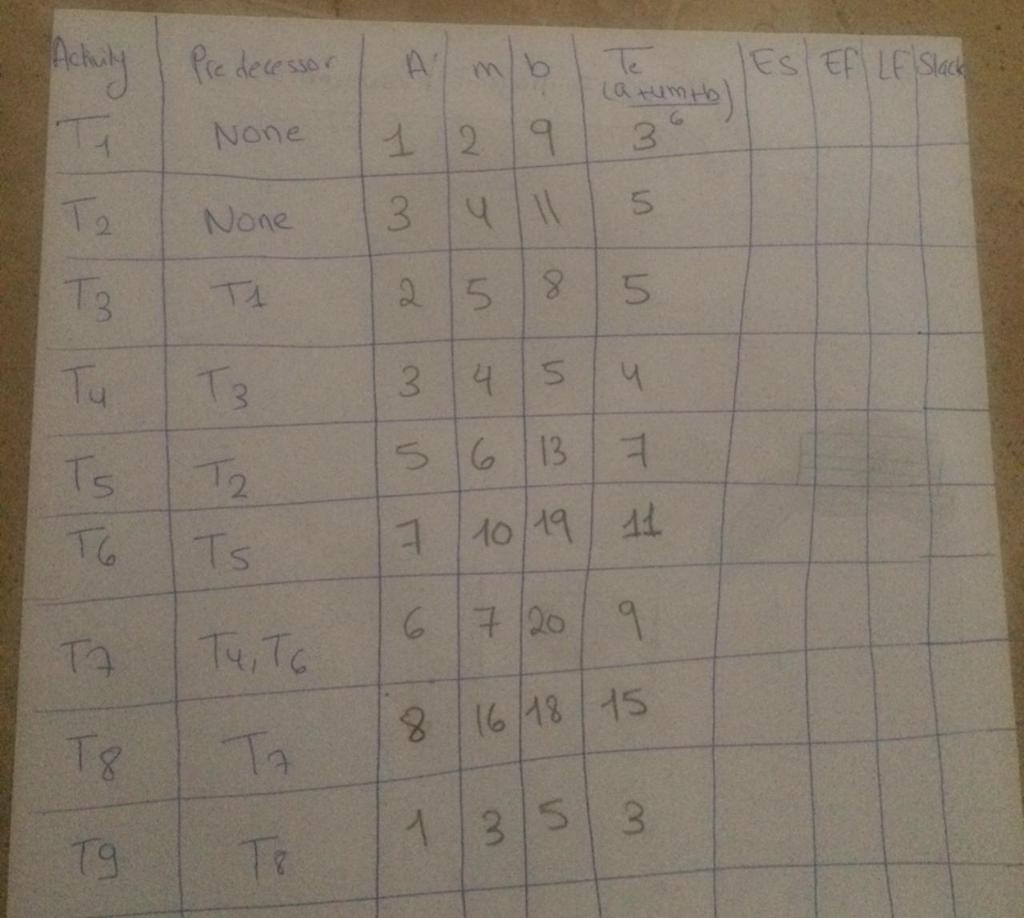 Activity Predecessor A m b Te ES Ef LF Slack
(a+4m+b)
6
T1 None 1 2 9 3
T2 None 3 4 11 5
T3 T1 2 5 8 5
T4 T3 3 4 5 4
T5 T2 5 6 13 7
T6 T5 7 10 19 11
T7 T4, T6 6 7 20 9
T8 T7 8 16 18 15
T9 T8 1 3 5 3